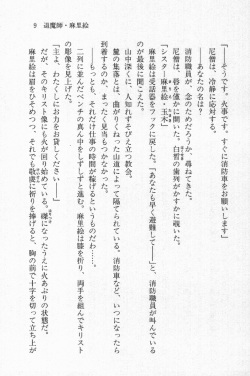 9 退魔師・麻里絵
「――そうです。火事です。すぐに消防車をお願いします」
尼僧は、冷静に応対する。
――あなたの名は?
消防職員が、念のためだろうか、尋ねてきた。
尼僧は、唇を僅かに開いた。白皙の歯列がかすかに覗いた。
「シスター麻里絵・玉木」
麻里絵は受話器をフックに戻した。「あなたも早く避難して――」と、消防職員が叫んでいる
のが最後に聞こえた。
山中深くに、人知れずそびえ立つ教会。
麓の集落とは、曲がりくねった山道によって隔てられている。消防車など、いつになったら
到着するのか、まったくわからない。
――もっとも、それだけ仕事の時間が稼げるというものだわ……。
二列に並んだベンチの真ん中をしずしずと進む。麻里絵は膝を折り、両手を組んでキリスト
の彫像を見上げた。
「主よ、わたくしにお力をお貸しください――」
だが、そのキリスト像にも火が回り始めている。磔になったうえに火あぶりの状態だ。
麻里絵は眉をひそめつつ、それでも敬虔に祈りを捧げると、胸の前で十字を切って立ち上が